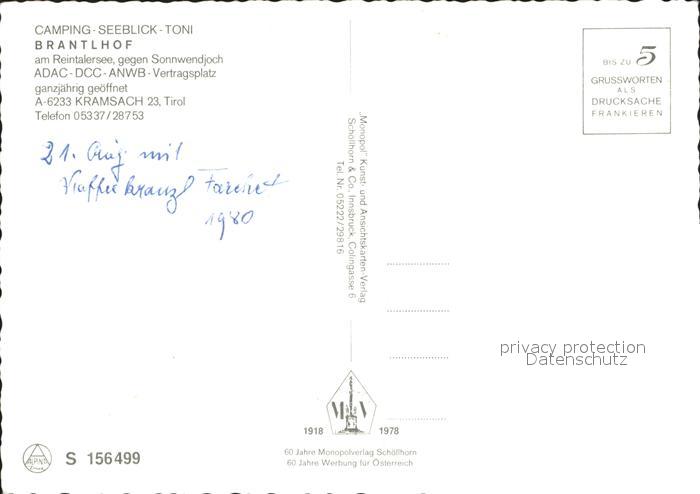 CAMPING - SEEBLICK - TONI
BRANTLHOF
am Reintalersee, gegen Sonnwendjoch
ADAC - DCC - ANWB - Vertragsplatz
ganzjährig geöffnet
A-6233 KRAMSACH 23, Tirol
Telefon 05337/28753
21. Aug mit
Kaffeekranzl
1980
„Monopol" Kunst- und Ansichtskarten-Verlag
Schöllhorn & Co. Innsbruck, Colingasse 6
Tel. Nr. 05222/29816
BIS ZU 5
GRUSSWORTEN
ALS
DRUCKSACHE
FRANKIEREN
privacy protection
Datenschutz
M V
1918 1978
60 Jahre Monopolverlag Schöllhorn
60 Jahre Werbung für Österreich
ALPINA
S 156499